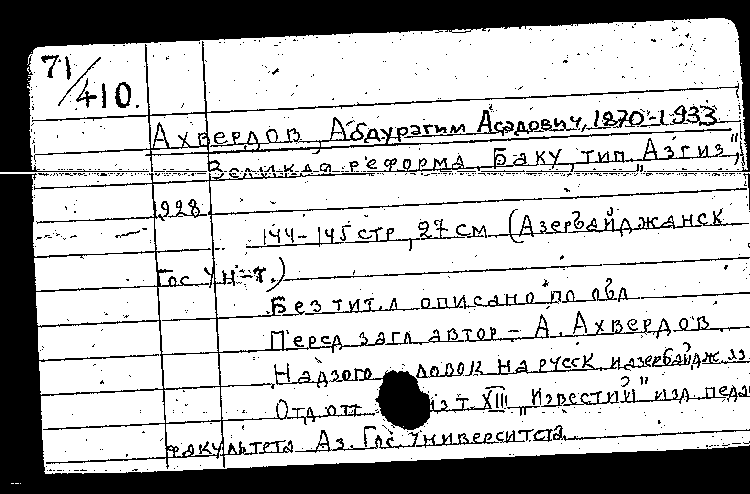 71/410.
Ахвердов, Абдурагим Асадович, 1870-1933
Великая реформа, Баку, тип. „Азгиз",
1928.
144-145 стр, 27 см (Азербайджанск
Гос. Ун-т.)
Без тит. л описано по обл
Перед загл автор - А. Ахвердов
на русск и азербайдж яз
Отд отт из т. XIII „Известий" изд педа
факультета Аз. Гос. Университета.